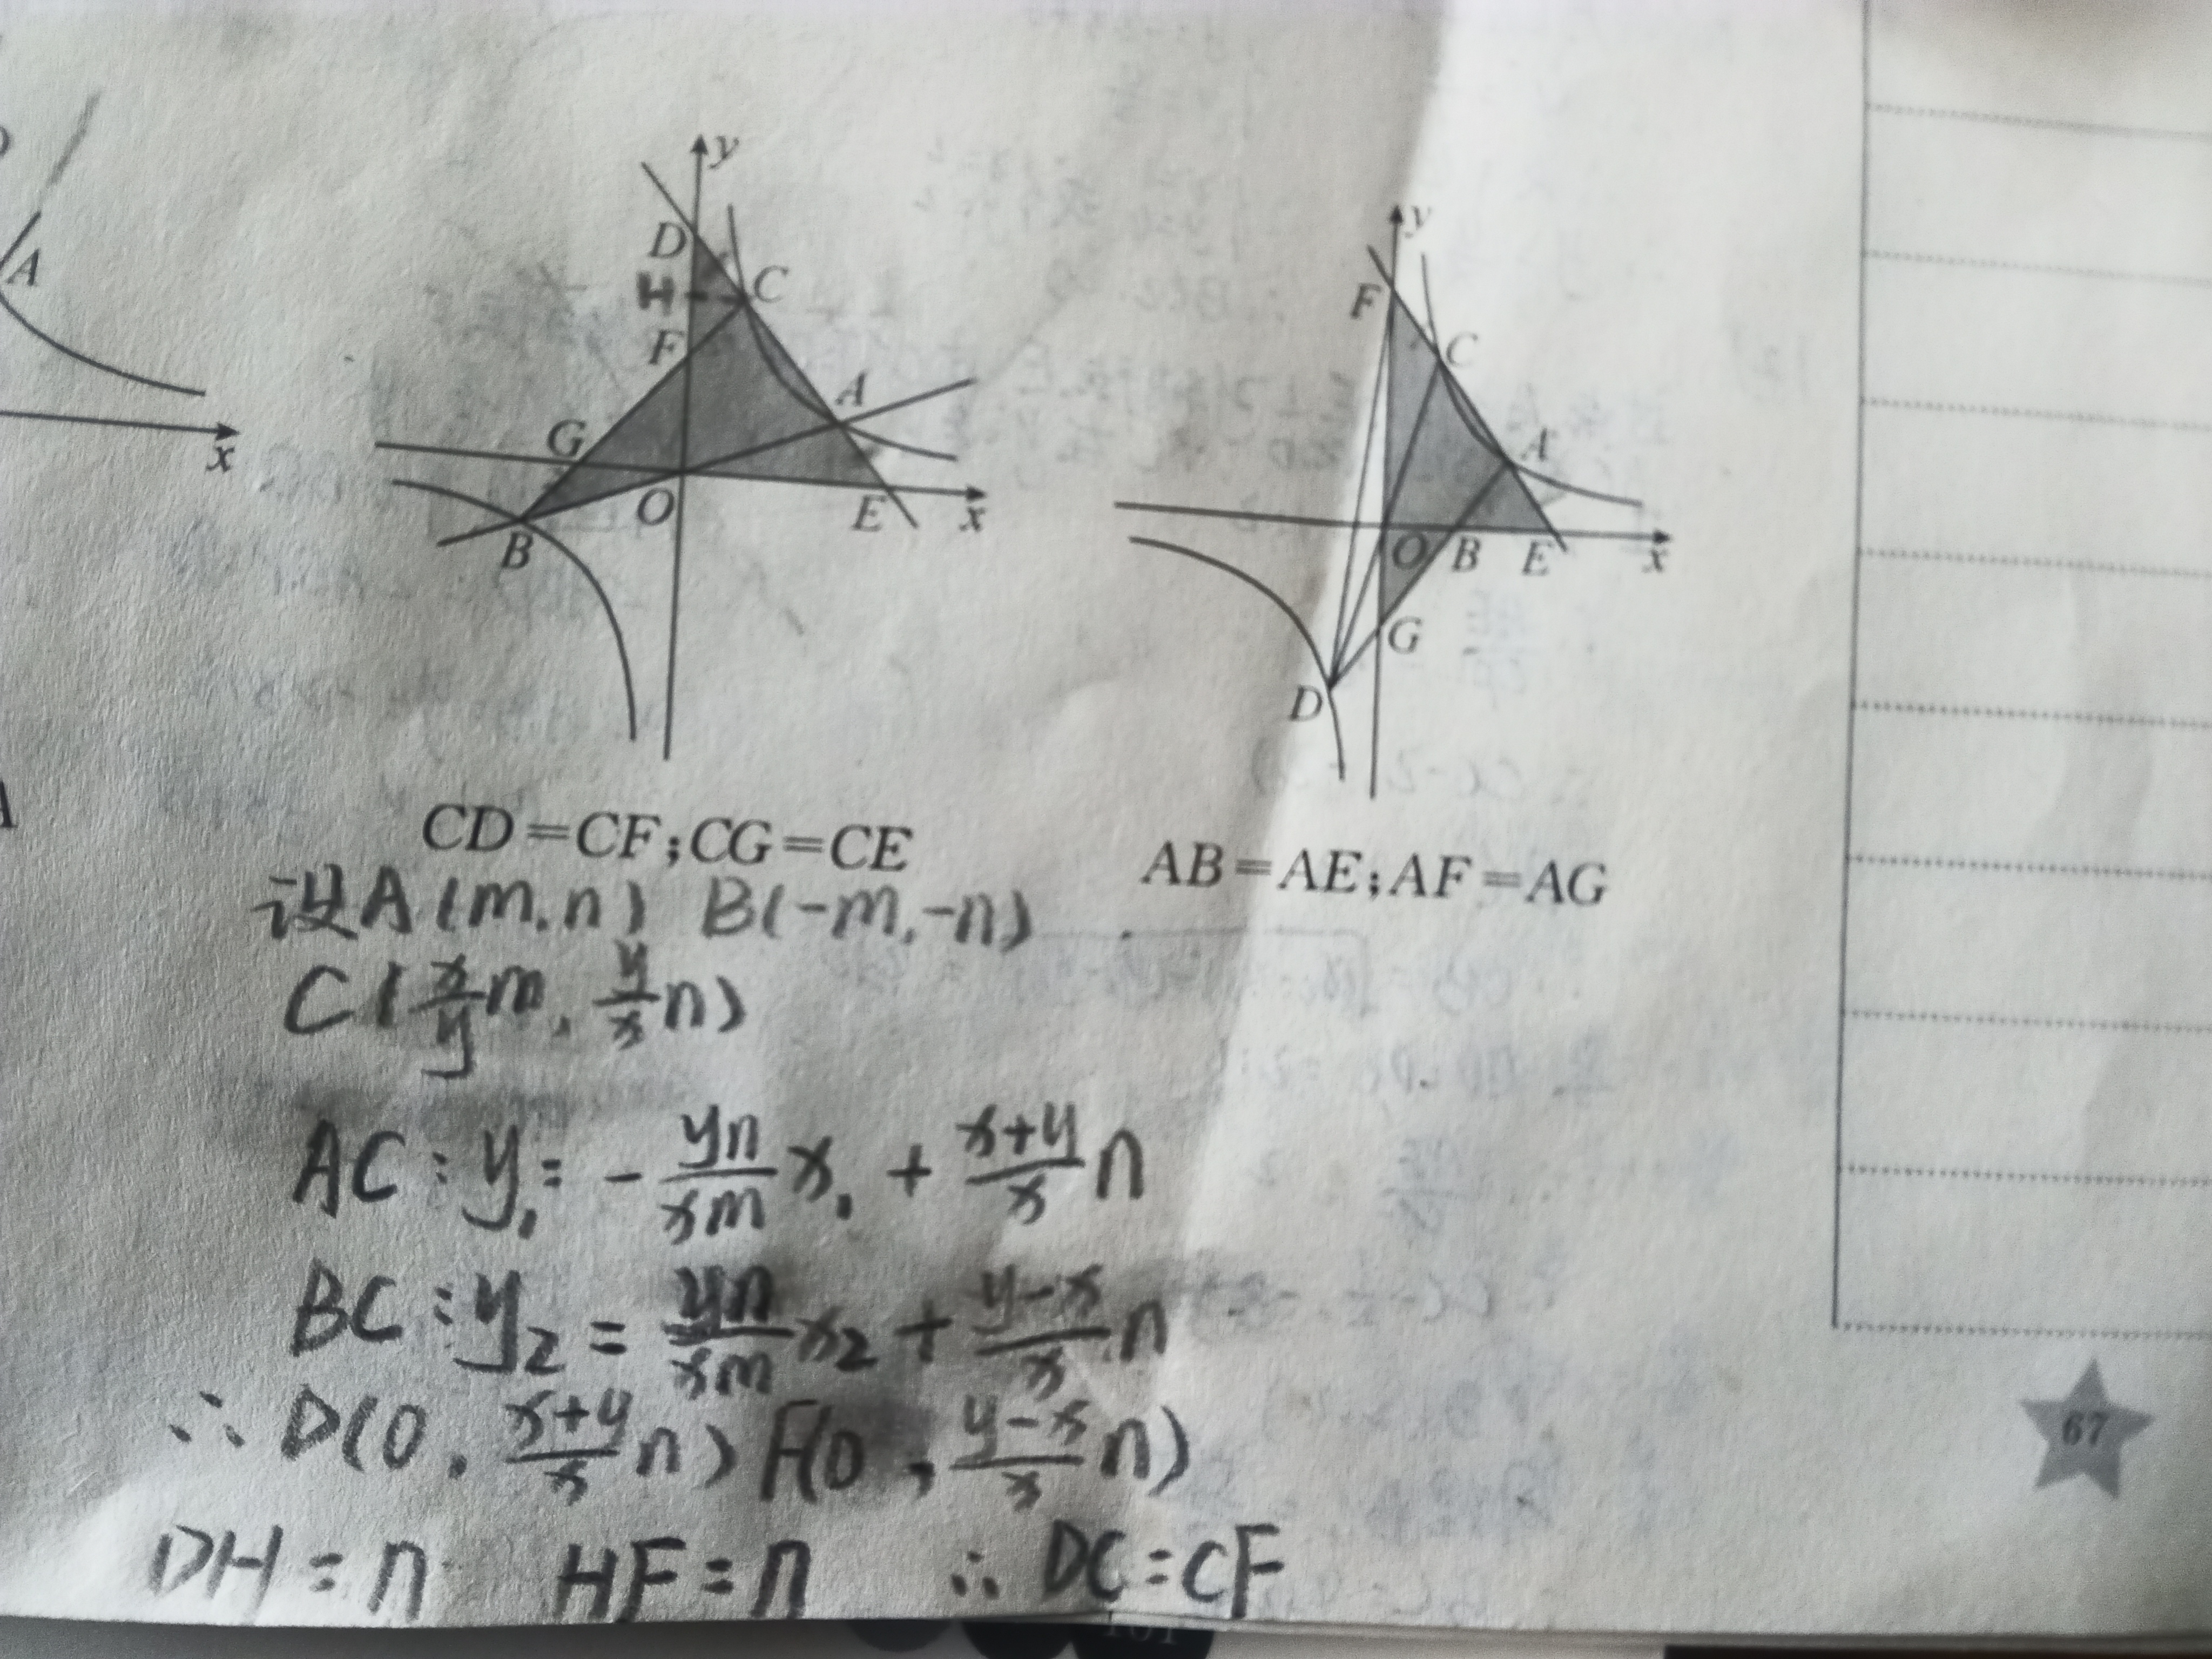 A
x
y
D
H
C
F
A
G
O
E
x
B
y
F
C
A
O
B
E
x
G
D
CD=CF;CG=CE
AB=AE;AF=AG
设A(m,n) B(-m,-n)
C(x/y m, y/x n)
AC:y₁=-yn/xm x₁+x+y/x n
BC:y₂=yn/xm x₂+y-x/x n
∴D(0,x+y/x n) F(0,y-x/x n)
DH=n HF=n ∴DC=CF
67